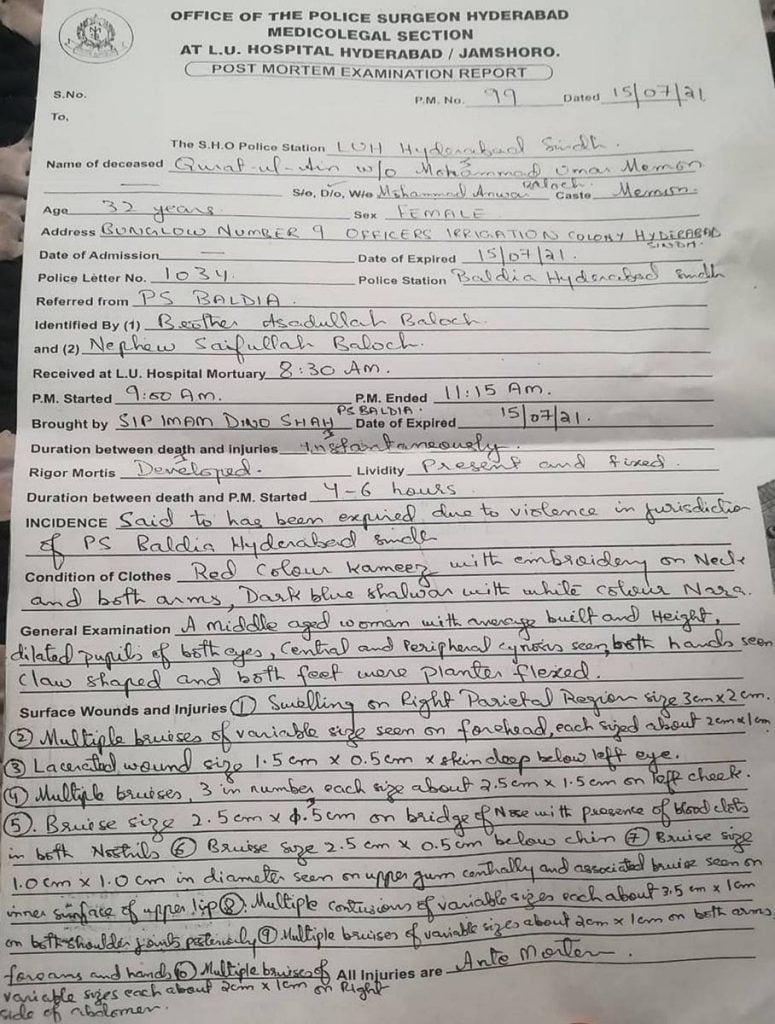 OFFICE OF THE POLICE SURGEON HYDERABAD
MEDICOLEGAL SECTION
AT L.U. HOSPITAL HYDERABAD / JAMSHORO.
POST MORTEM EXAMINATION REPORT
S.No. P.M. No. 99 Dated 15/07/21
To,
The S.H.O Police Station LUH Hyderabad Sindh.
Name of deceased Qurat-ul-Ain w/o Mohammad Umar Memon
S/o, D/o, W/o Mohammad Anwar Baloch. Caste Memon.
Age 32 years. Sex FEMALE
Address BUNGLOW NUMBER 9 OFFICERS IRRIGATION COLONY HYDERABAD SINDH.
Date of Admission — Date of Expired 15/07/21.
Police Letter No. 1034. Police Station Baldia Hyderabad Sindh
Referred from PS BALDIA.
Identified By (1) Brother Asadullah Baloch.
and (2) Nephew Saifullah Baloch.
Received at L.U. Hospital Mortuary 8:30 Am.
P.M. Started 9:00 Am. P.M. Ended 11:15 Am.
Brought by SIP IMAM DINO SHAH PS BALDIA. Date of Expired 15/07/21.
Duration between death and injuries Instaintaneously.
Rigor Mortis Developed. Lividity Present and fixed.
Duration between death and P.M. Started 4-6 hours
INCIDENCE Said to has been expired due to violence in jurisdiction
of PS Baldia Hyderabad Sindh
Condition of Clothes Red Colour Kameez with embroidery on Neck
and both arms, Dark blue shalwar with white colour Nara.
General Examination A middle aged woman with average built and Height,
dilated pupils of both eyes, Central and Peripheral cynosis seen, both hands seen
Claw shaped and both feet were planter flexed.
Surface Wounds and Injuries (1) Swelling on Right Parietal Region size 3cm x 2cm.
(2) Multiple bruises of variable size seen on forehead, each sized about 2cm x 1cm
(3) Lacerated wound size 1.5cm x 0.5cm x skin deep below left eye.
(4) Multiple bruises, 3 in number each size about 2.5cm x 1.5cm on left cheek.
(5). Bruise size 2.5cm x 1.5cm on bridge of Nose with presence of blood clots
in both Nostrils (6) Bruise size 2.5cm x 0.5cm below chin (7) Bruise size
1.0cm x 1.0cm in diameter seen on upper gum centrally and associated bruise seen on
inner surface of upper lip (8). Multiple contusions of variable sizes each about 3.5cm x 1cm
on both shoulder joints posteriorly (9) Multiple bruises of variable sizes about 2cm x 1cm on both arms
forearms and hands (10) Multiple bruises of All Injuries are Ante Mortem.
variable sizes each about 2cm x 1cm on Right
side of abdomen.